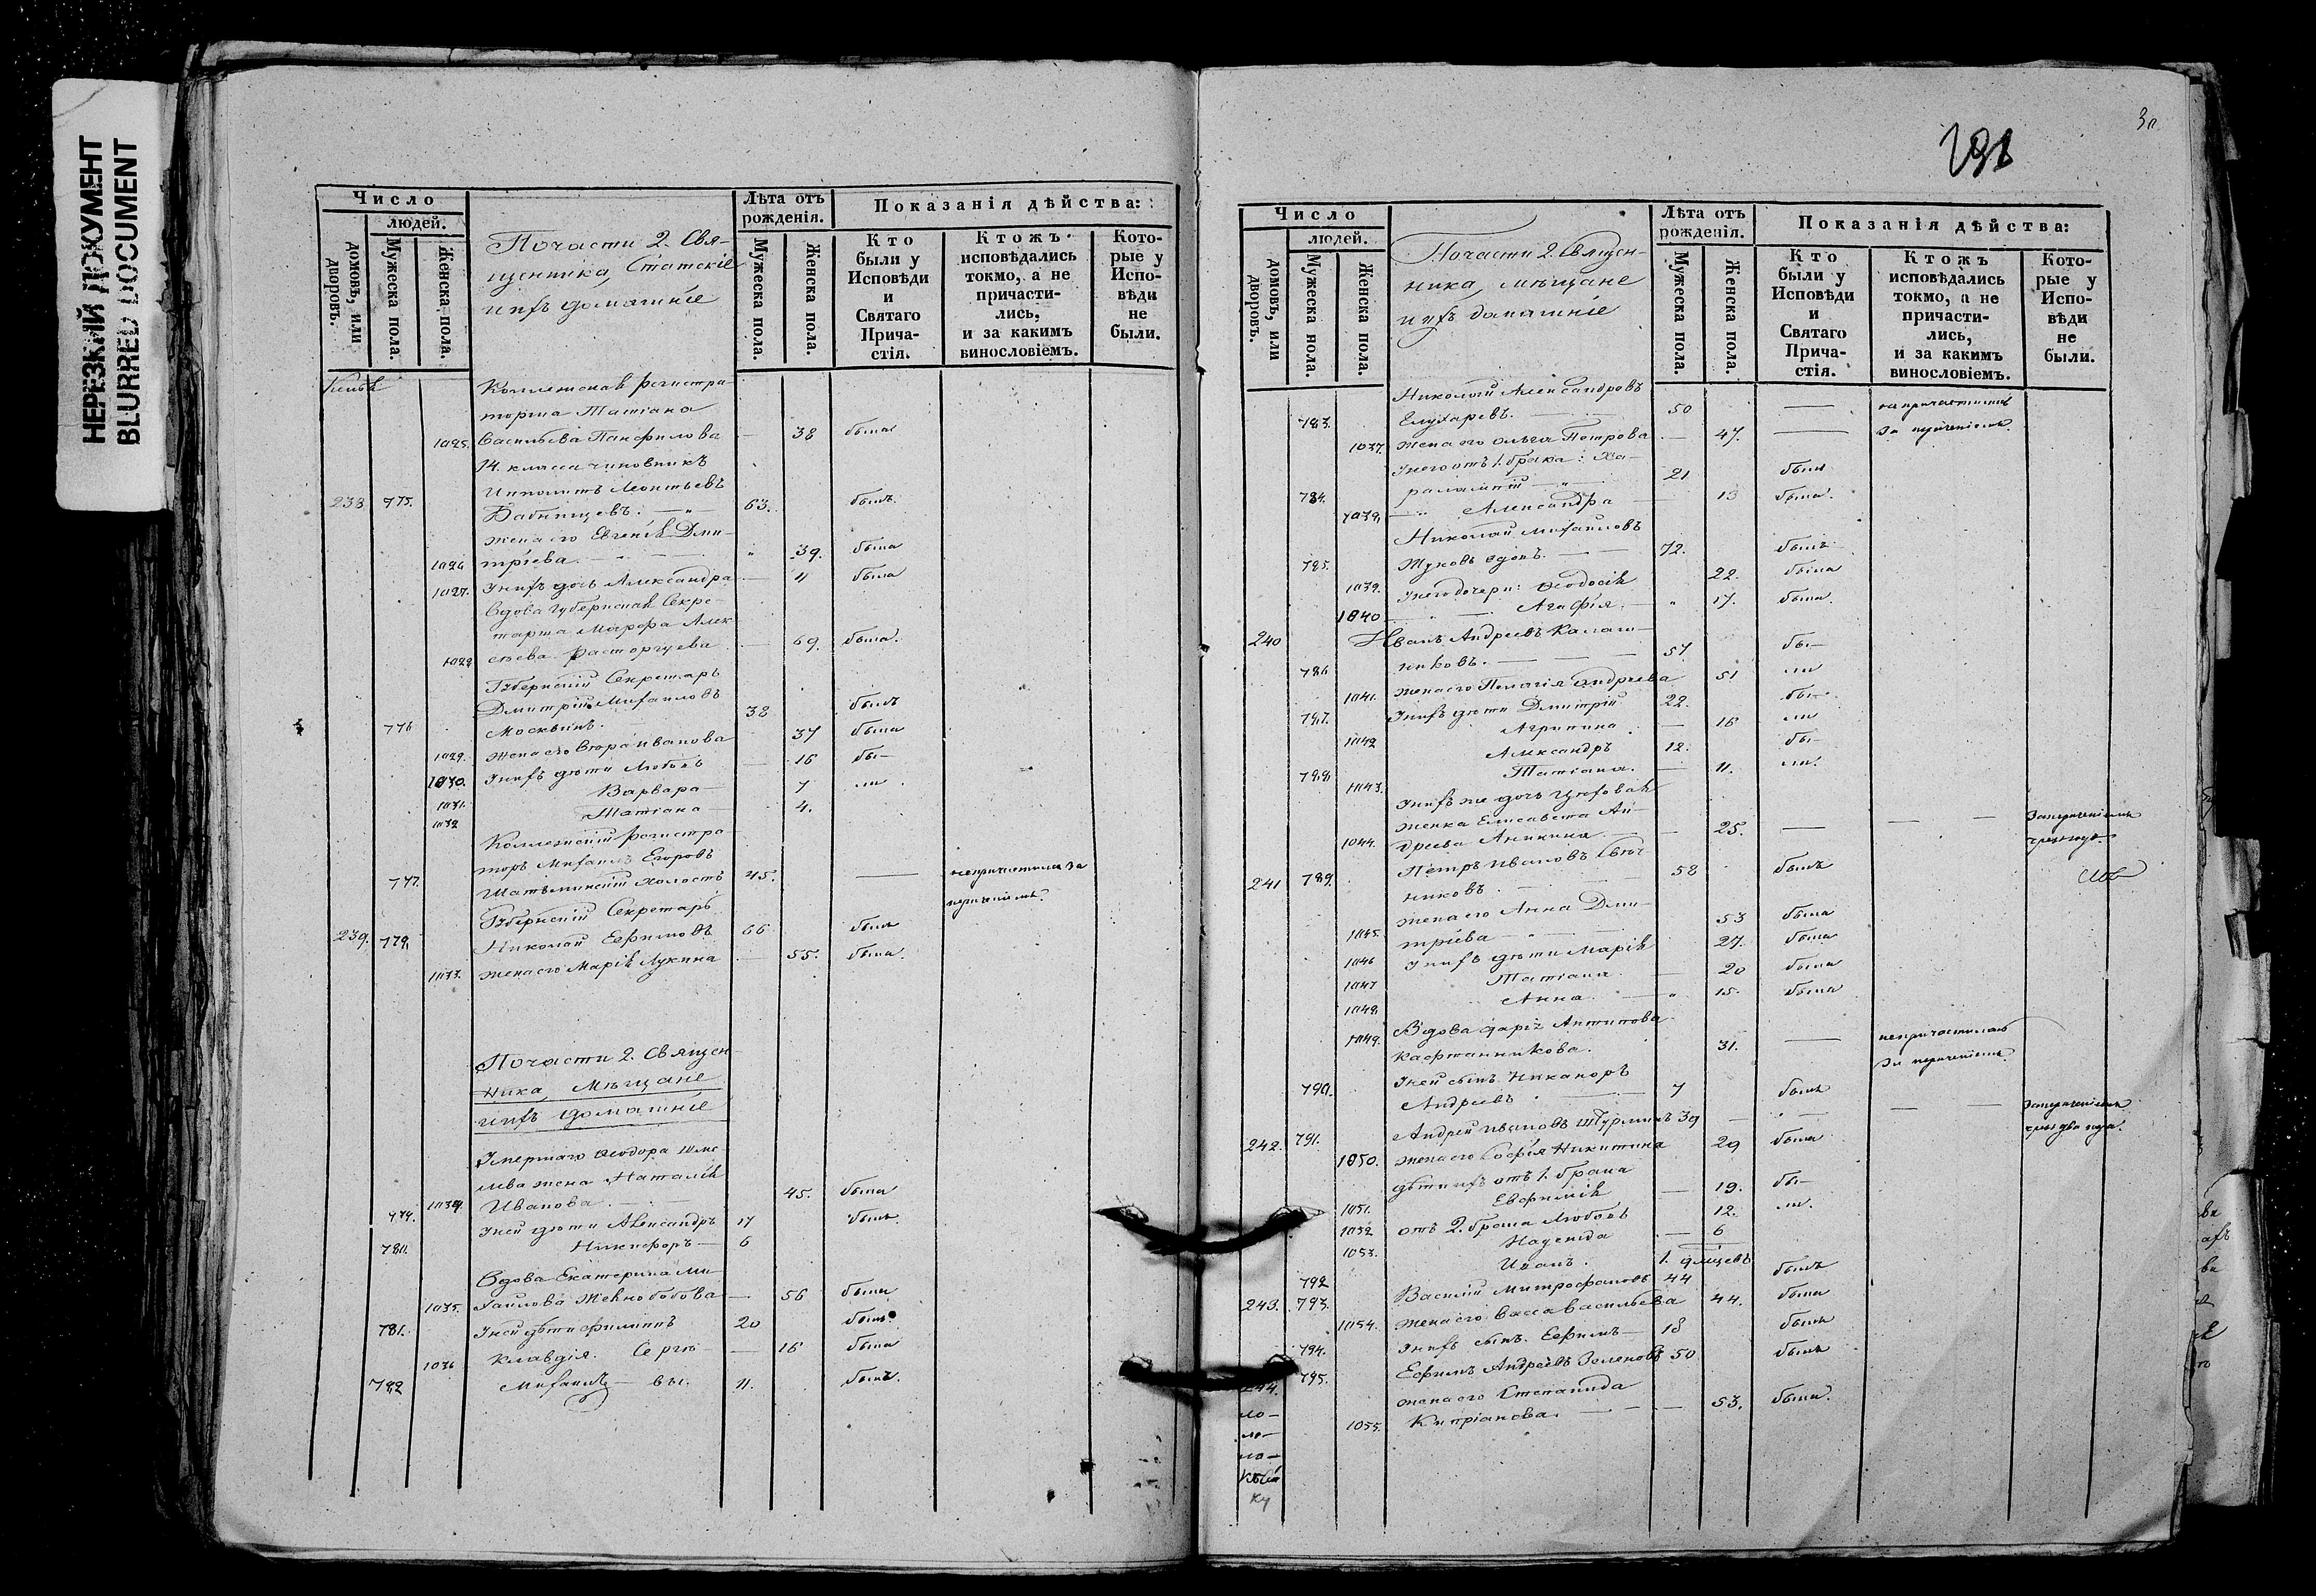 НЕРЕЗКИЙ ДОКУМЕНТ
BLURRED DOCUMENT
Число
людей.
домовъ, или дворовъ.
Мужеска пола.
Женска пола.
Почасти 2. Свя-
щенника, Статскіе
ихъ домашніе
Лѣта отъ рожденія.
Мужеска пола.
Женска пола.
Показанія дѣйства:
Кто были у Исповѣди и Святаго Прича-стія.
Ктожъ исповѣдались токмо, а не причасти-лись, и за какимъ винословіемъ.
Кото-рые у Испо-вѣди не были.
Коллежская регистра-
торша Татіана
1025. Васильева Панфилова — 38 была
14. класса чиновникъ
Ипполитъ Леонтьевъ
238 775. 63. былъ
жена его Евгенія Дми-
1026 тріева " 39. была
1027. У нихъ дочь Александра — 11 была
Вдова Губернская Секре-
тарша Марфа Алек-
1028 сѣева Расторгуева — 69. была
Губернскій Секретарь
Дмитрій Михаиловъ
776 Москвинъ. 38 былъ
1029. жена его Ивановна 37 была
1030. У нихъ дѣти Любовь — 16 бы-
1031. Варвара 7 ли
1032 Татіана 4.
Коллежскій регистра-
торъ Михаилъ Егоровъ
777. холостъ 45. — непричастился за
Губернскій Секретарь
239. 778 Николай Ефимовъ 66 былъ
1033. жена его Марія Лукина — 55. была
Почасти 2. Священ-
ника, Мѣщане
ихъ домашніе
Умершаго Ѳеодора
жена Наталія
1034. Иванова 45. была
779. У ней дѣти Александръ 17 былъ
780. Никифоръ — 6
Вдова Екатерина Ми-
1035. хаилова — 56 была
781. У ней дѣти Филиппъ 20 былъ
1036 Клавдія. Сергѣе- — 16 была
782 Михаилъ — вы. 11. былъ.
30
Число
людей.
домовъ, или дворовъ.
Мужеска пола.
Женска пола.
Почасти 2. Священ-
ника, мѣщане
ихъ домашніе
Лѣта отъ рожденія.
Мужеска пола.
Женска пола.
Показанія дѣйства:
Кто были у Исповѣди и Святаго Прича-стія.
Ктожъ исповѣдались токмо, а не причасти-лись, и за какимъ винословіемъ.
Кото-рые у Испо-вѣди не были.
Николай Александровъ
783. Елухаревъ. 50 —
1037. жена его Ольга Петрова — 47. —
У него отъ 1. брака: Ха-
784. ралампій 21 былъ
1038. Александра 13 была.
Николай Михаиловъ
785. Жуковъ вдовъ. 72. былъ
1039. У него дочери: Ѳеодосія 22. была
1040 Агафія. — " 17. была.
240 Иванъ Андреевъ Калаш-
786 никовъ. 57 бы-
1041. жена его Пелагія Андреева 51 ли
787. У нихъ дѣти Дмитрій 22. бы-
1042 Агрипина — 16 ли
788. Александръ 12. бы-
1043. Татіана. — 11. ли.
У нихъ же дочь цеховая
женка Елисавета Ан-
1044. дреева Аникина — 25. — — —
241 789. Петръ Ивановъ
никовъ. 58 былъ
жена его Анна Дми-
1045. тріева 53 была
1046 У нихъ дѣти Марія 27. была
1047 Татіана. — 20 была
1048 Анна. — " 15. была
Вдова Дарія Антипова
1049. Кафтанникова. 31. — непричастилась
У ней сынъ Никаноръ
790. Андреевъ 7 былъ
242. 791. Андрей Ивановъ 39 — —
1050. жена его Софія Никитина 29 была
дѣти ихъ отъ 1. брака
1051. Евфимія — 19. бы-
1052 отъ 2. брака Любовь 12. ли.
1053. Надежда — 6
792 Иванъ.
243. 793. Василій Митрофановъ 44 былъ
1054. жена его Васса Васильева 44. была
794. У нихъ сынъ Ефимъ — 18 былъ
244. 795. Ефимъ Андреевъ Зеленовъ 50 былъ
жена его Степанида
1055. Кипріанова. — — — 53. была.